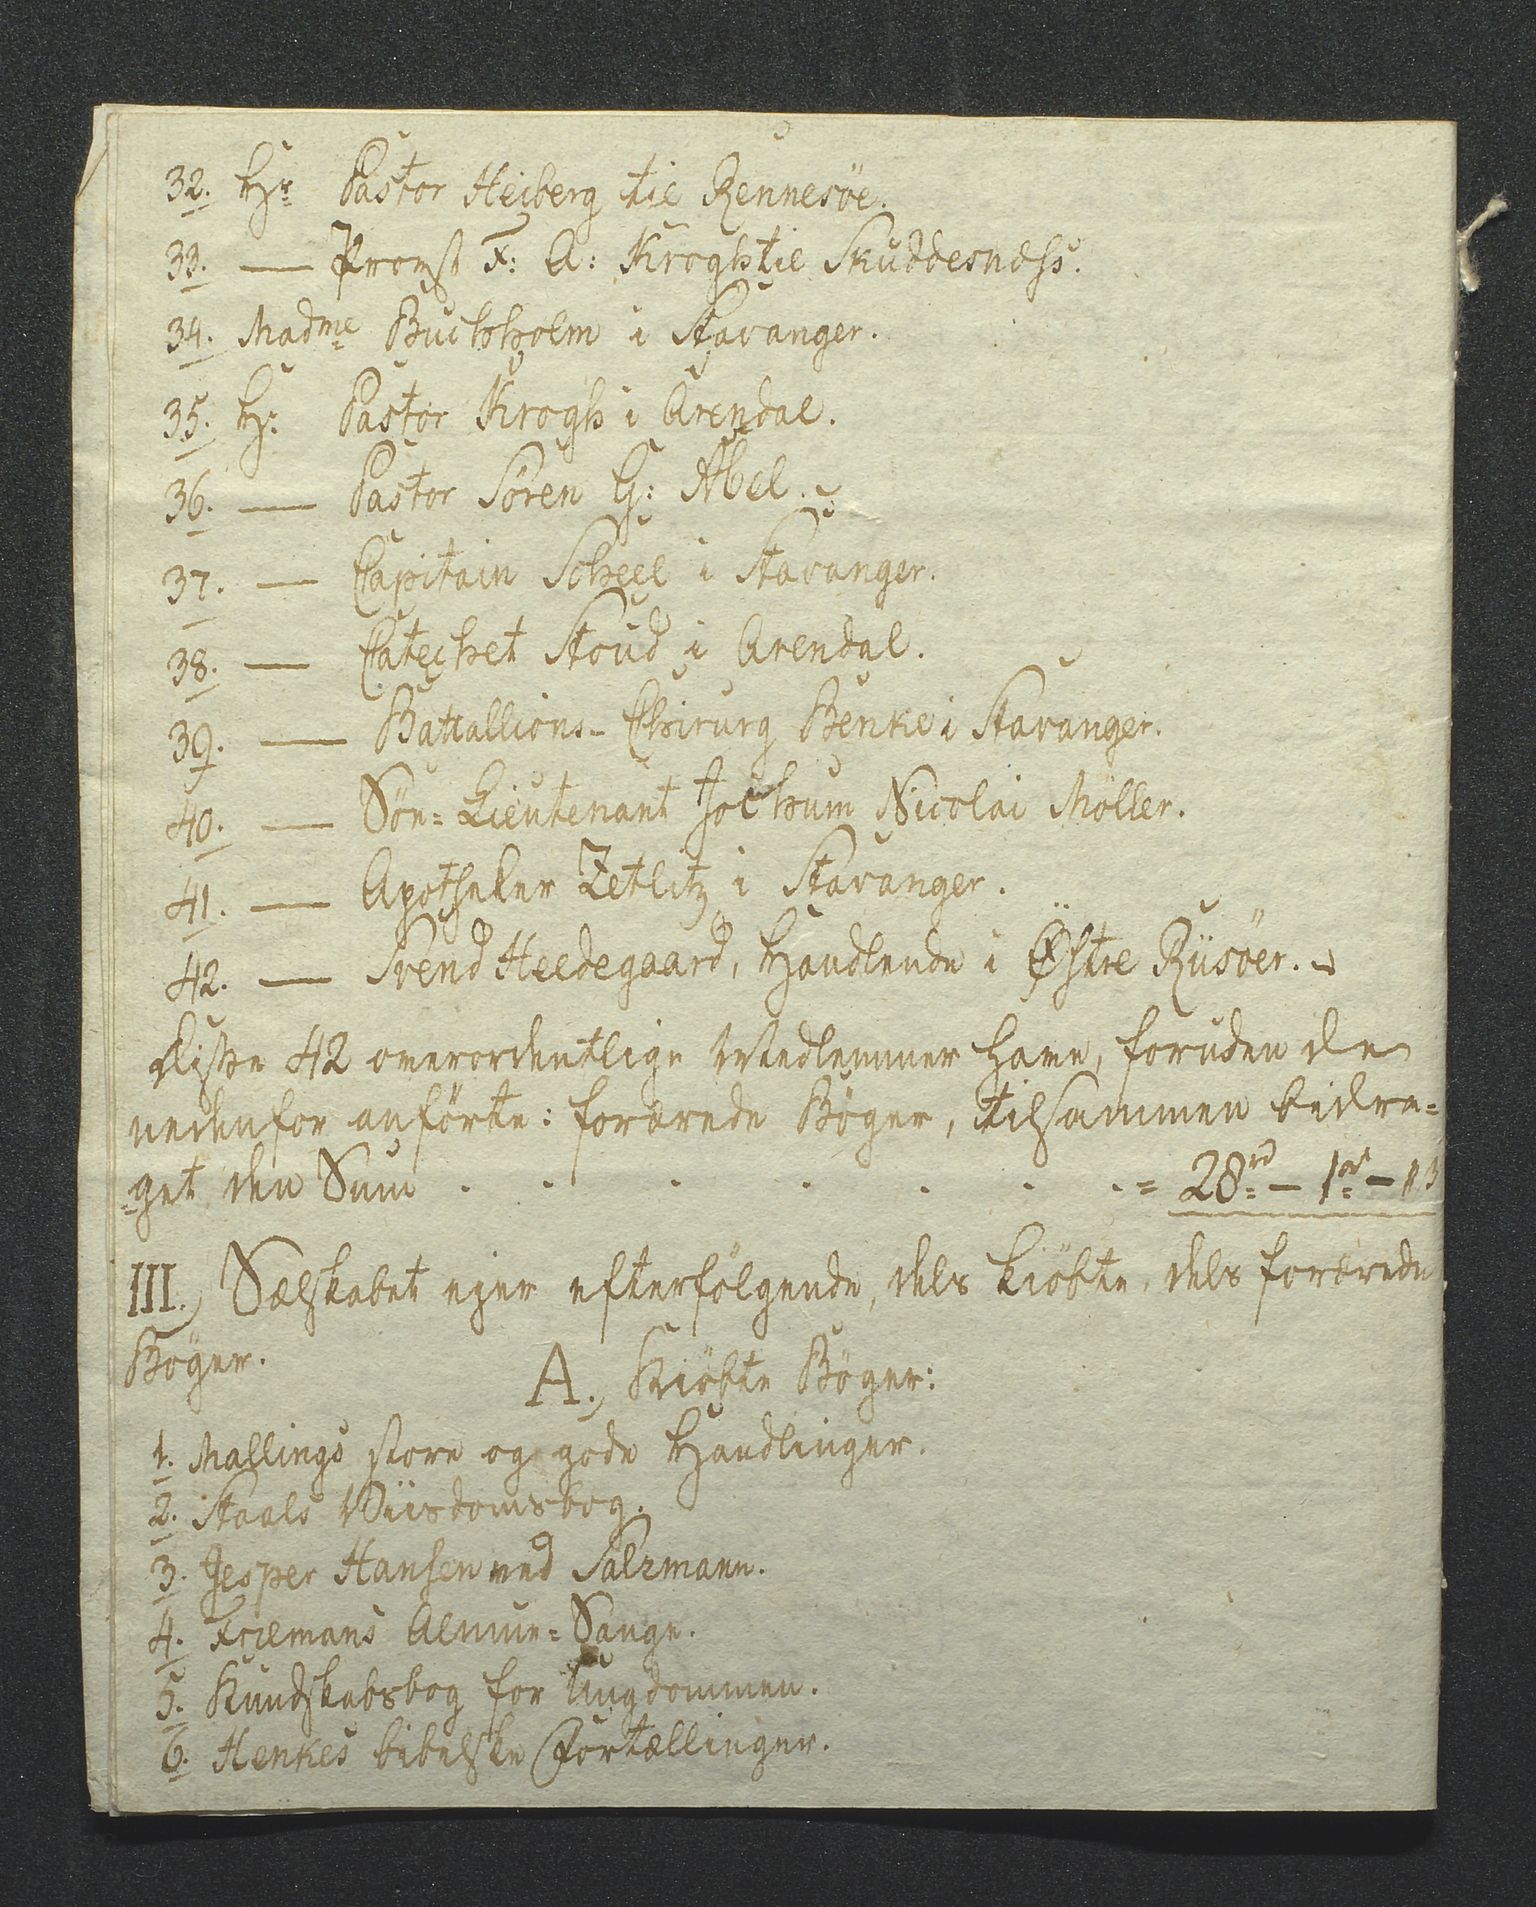 32. Hr Pastor Heiberg til Rennesöe.
33. — Provst F: A: Krogh til Skuddesnæss.
34. Madme Buchholm i Stavanger.
35. H: Pastor Krogh i Arendal.
36. — Pastor Sören G: Abel.
37. — Capitain Scheel i Stavanger.
38. — Catechet Stoud i Arendal.
39. — Battallions-Chirurg Benke i Stavanger.
40. — Söe-Lieutenant Jochum Nicolai Möller.
41. — Apotheker Zetlitz i Stavanger.
42. — Svend Heedegaard, Handlende i Östre Riisöer.
Disse 42 overordentlige Medlemmer have, foruden de
nedenfor anförte: forærede Böger, tilsammen bidra-
get den Summ . . . . . . . = 28rd — 1ort —
III. Sælskabet ejer efterfölgende, dels kiöbte, dels forærede
Böger.
A. Kiöbte Böger:
1. Mallings store og gode Handlinger.
2. Staals Viisdomsbog.
3. Jesper Hansen ved Salzmann.
4. Friemans Almue-Sange.
5. Kundskabsbog for Ungdommen.
6. Henkes bibelske Fortællinger.